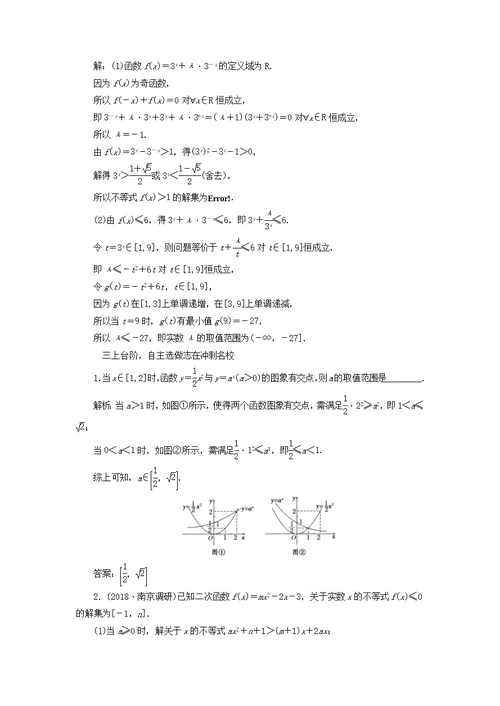 解：(1)函数 f(x)＝3ˣ＋λ·3⁻ˣ的定义域为 R.
因为 f(x)为奇函数，
所以 f(－x)＋f(x)＝0 对∀x∈R 恒成立，
即 3⁻ˣ＋λ·3ˣ＋3ˣ＋λ·3⁻ˣ＝(λ＋1)(3ˣ＋3⁻ˣ)＝0 对∀x∈R 恒成立，
所以 λ＝－1.
由 f(x)＝3ˣ－3⁻ˣ>1，得(3ˣ)²－3ˣ－1>0，
解得 3ˣ>(1＋√5)/2或 3ˣ<(1－√5)/2(舍去)，
所以不等式 f(x)>1 的解集为Error!.
(2)由 f(x)≤6，得 3ˣ＋λ·3⁻ˣ≤6，即 3ˣ＋λ/3ˣ≤6.
令 t＝3ˣ∈[1,9]，则问题等价于 t＋λ/t≤6 对 t∈[1,9]恒成立，
即 λ≤－t²＋6t 对 t∈[1,9]恒成立，
令 g(t)＝－t²＋6t，t∈[1,9]，
因为 g(t)在[1,3]上单调递增，在[3,9]上单调递减，
所以当 t＝9 时，g(t)有最小值 g(9)＝－27，
所以 λ≤－27，即实数 λ 的取值范围为(－∞，－27].
三上台阶，自主选做志在冲刺名校
1.当 x∈[1,2]时，函数 y＝1/2x²与 y＝aˣ(a>0)的图象有交点，则 a的取值范围是________.
解析：当 a>1 时，如图①所示，使得两个函数图象有交点，需满足1/2·2²≥a²，即 1<a≤
√2；
当 0<a<1 时，如图②所示，需满足1/2·1²≤a¹，即1/2≤a<1.
综上可知，a∈[1/2，√2].
y＝1/2x² y y＝aˣ 2 1 1/2 O 1 2 x
y＝aˣ y y＝1/2x² 2 1 1/2 O 1 2 x
图① 图②
答案：[1/2，√2]
2.(2018·南京调研)已知二次函数 f(x)＝mx²－2x－3，关于实数 x 的不等式 f(x)≤0
的解集为[－1，n].
(1)当 a≥0 时，解关于 x 的不等式 ax²＋n＋1>(m＋1)x＋2ax；